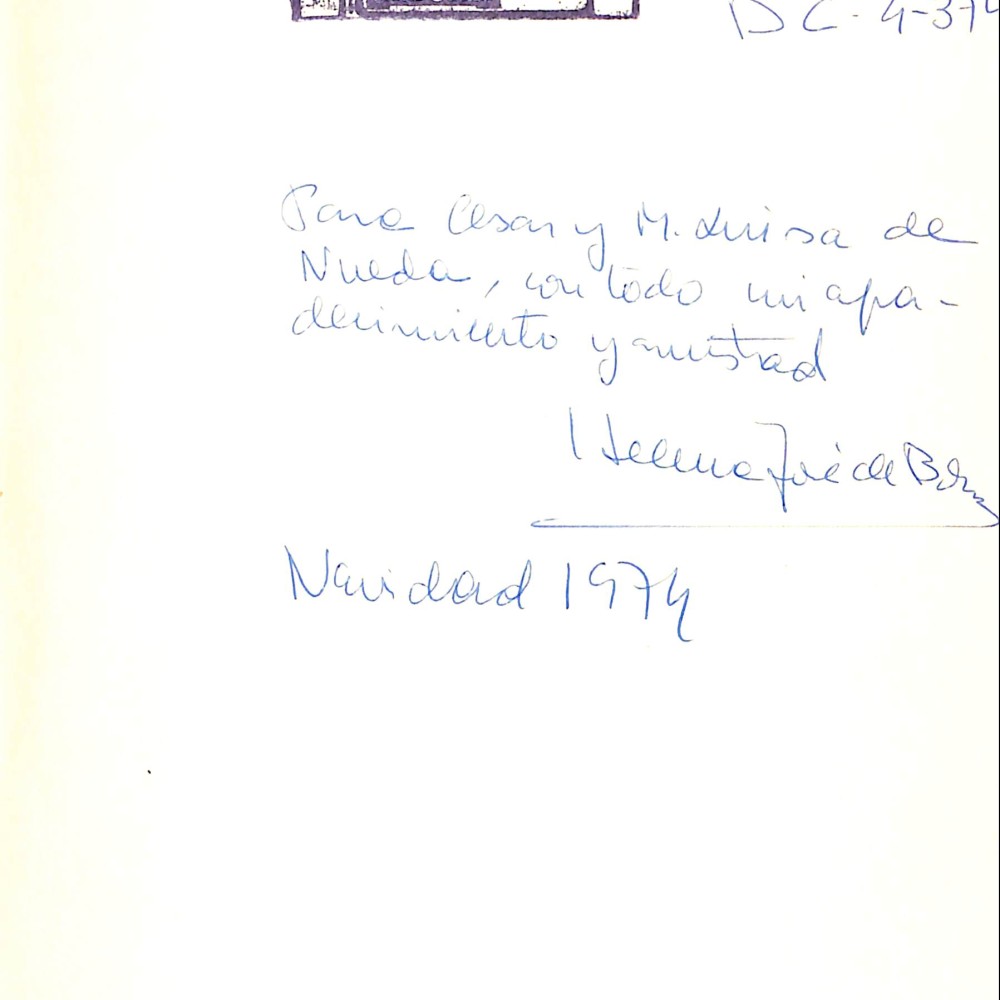 DC-4-374
Para Cesar y M. Luisa de
Nueda, con todo mi agra-
decimiento y amistad
Helena José de
Navidad 1974